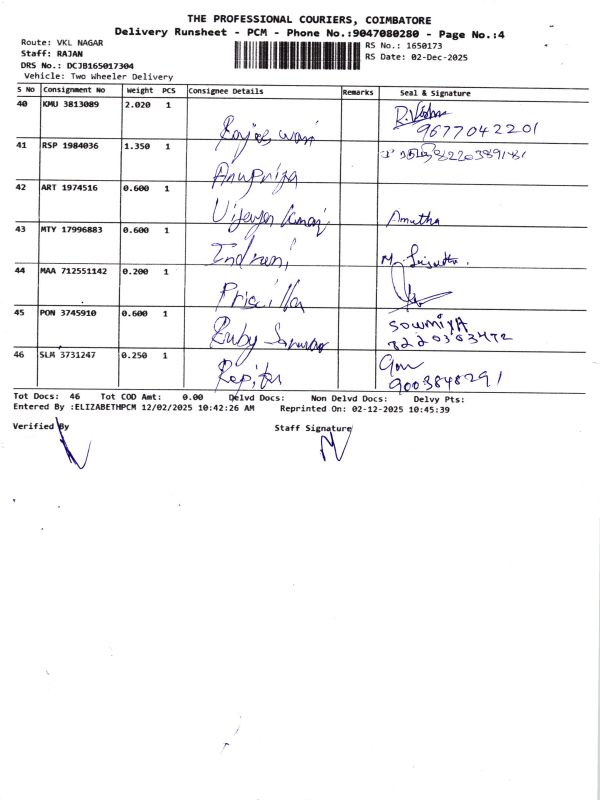 THE PROFESSIONAL COURIERS, COIMBATORE
Delivery Runsheet - PCM - Phone No.:9047080280 - Page No.:4
Route: VKL NAGAR
Staff: RAJAN
DRS No.: DCJB165017304
Vehicle: Two Wheeler Delivery
RS No.: 1650173
RS Date: 02-Dec-2025
S No Consignment No Weight PCS Consignee Details Remarks Seal & Signature
40 KMU 3813089 2.020 1 Rajeswari
9677042201
41 RSP 1984036 1.350 1 Anupriya
42 ART 1974516 0.600 1 Amutha
43 MTY 17996883 0.600 1 Indrani
44 MAA 712551142 0.200 1 Priscilla
45 PON 3745910 0.600 1 Ruby SowmiyA
46 SLM 3731247 0.250 1
9003848291
Tot Docs: 46 Tot COD Amt: 0.00 Delvd Docs: Non Delvd Docs: Delvy Pts:
Entered By :ELIZABETHPCM 12/02/2025 10:42:26 AM Reprinted On: 02-12-2025 10:45:39
Verified By Staff Signature